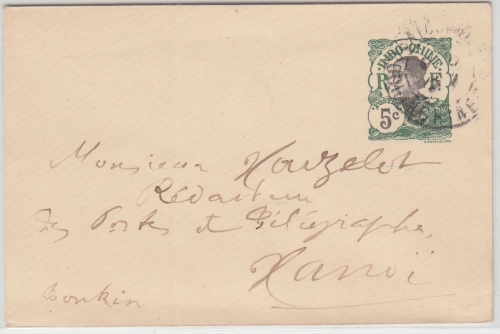 INDO-CHINE
R F
POSTES
5c
Monsieur Houzelot
Rédacteur
des Postes et Télégraphe,
Hanoï
Tonkin